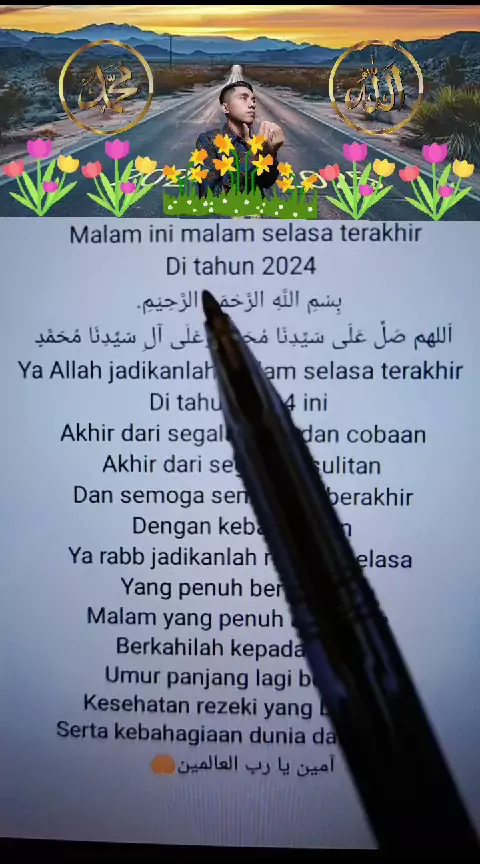 محمد
الله
Malam ini malam selasa terakhir
Di tahun 2024
بِسْمِ اللَّهِ الرَّحْمَ الرَّحِيْمِ.
اَللهم صَلِّ عَلَى سَيِّدِنَا مُحَ وَعَلَى آلِ سَيِّدِنَا مُحَمَّدٍ
Ya Allah jadikanlah lam selasa terakhir
Di tahu 4 ini
Akhir dari segal dan cobaan
Akhir dari se sulitan
Dan semoga sem berakhir
Dengan keba n
Ya rabb jadikanlah m selasa
Yang penuh ber
Malam yang penuh
Berkahilah kepada
Umur panjang lagi b
Kesehatan rezeki yang b
Serta kebahagiaan dunia da
آمين يا رب العالمين